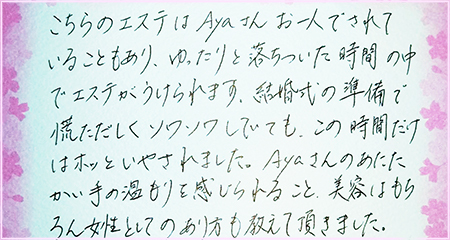 こちらのエステは Ayaさん お一人でされて
いることもあり、ゆったりと落ちついた時間の中
でエステがうけられます。結婚式の準備で
慌ただしくソワソワしていても、この時間だけ
はホッといやされました。Ayaさんのあたた
かい手の温もりを感じられること、美容はもち
ろん女性としてのあり方も教えて頂きました。